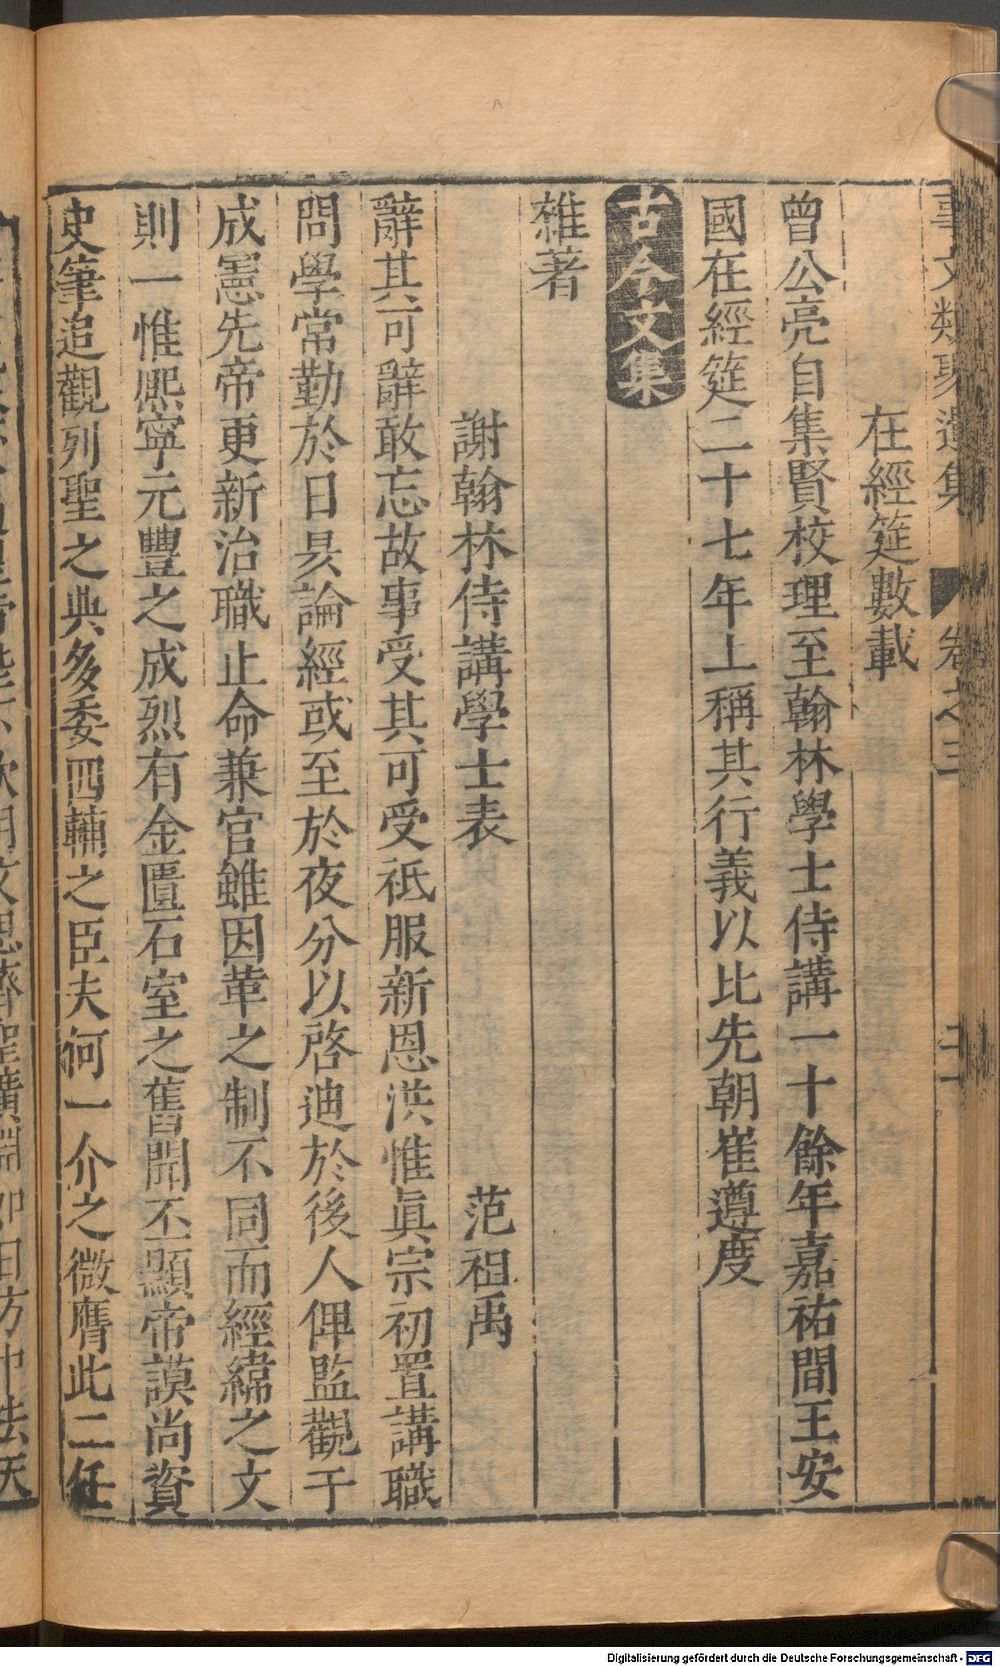 事文類聚遺集 卷之三 二
在經筵數載
曾公亮自集賢校理至翰林學士侍講一十餘年嘉祐間王安
國在經筵二十七年上稱其行義以比先朝崔遵度
古今文集
雜著
謝翰林侍講學士表 范祖禹
辭其可辭敢忘故事受其可受祗服新恩洪惟眞宗初置講職
問學常勤於日昃論經或至於夜分以啓迪於後人俾監觀于
成憲先帝更新治職止命兼官雖因革之制不同而經緯之文
則一惟熈寧元豐之成烈有金匱石室之舊聞丕顯帝謨尚資
史筆追觀列聖之典多委四輔之臣夫何一介之微膺此二任
欽明文思濟聖廣淵如日方中法天
Digitalisierung gefördert durch die Deutsche Forschungsgemeinschaft - DFG